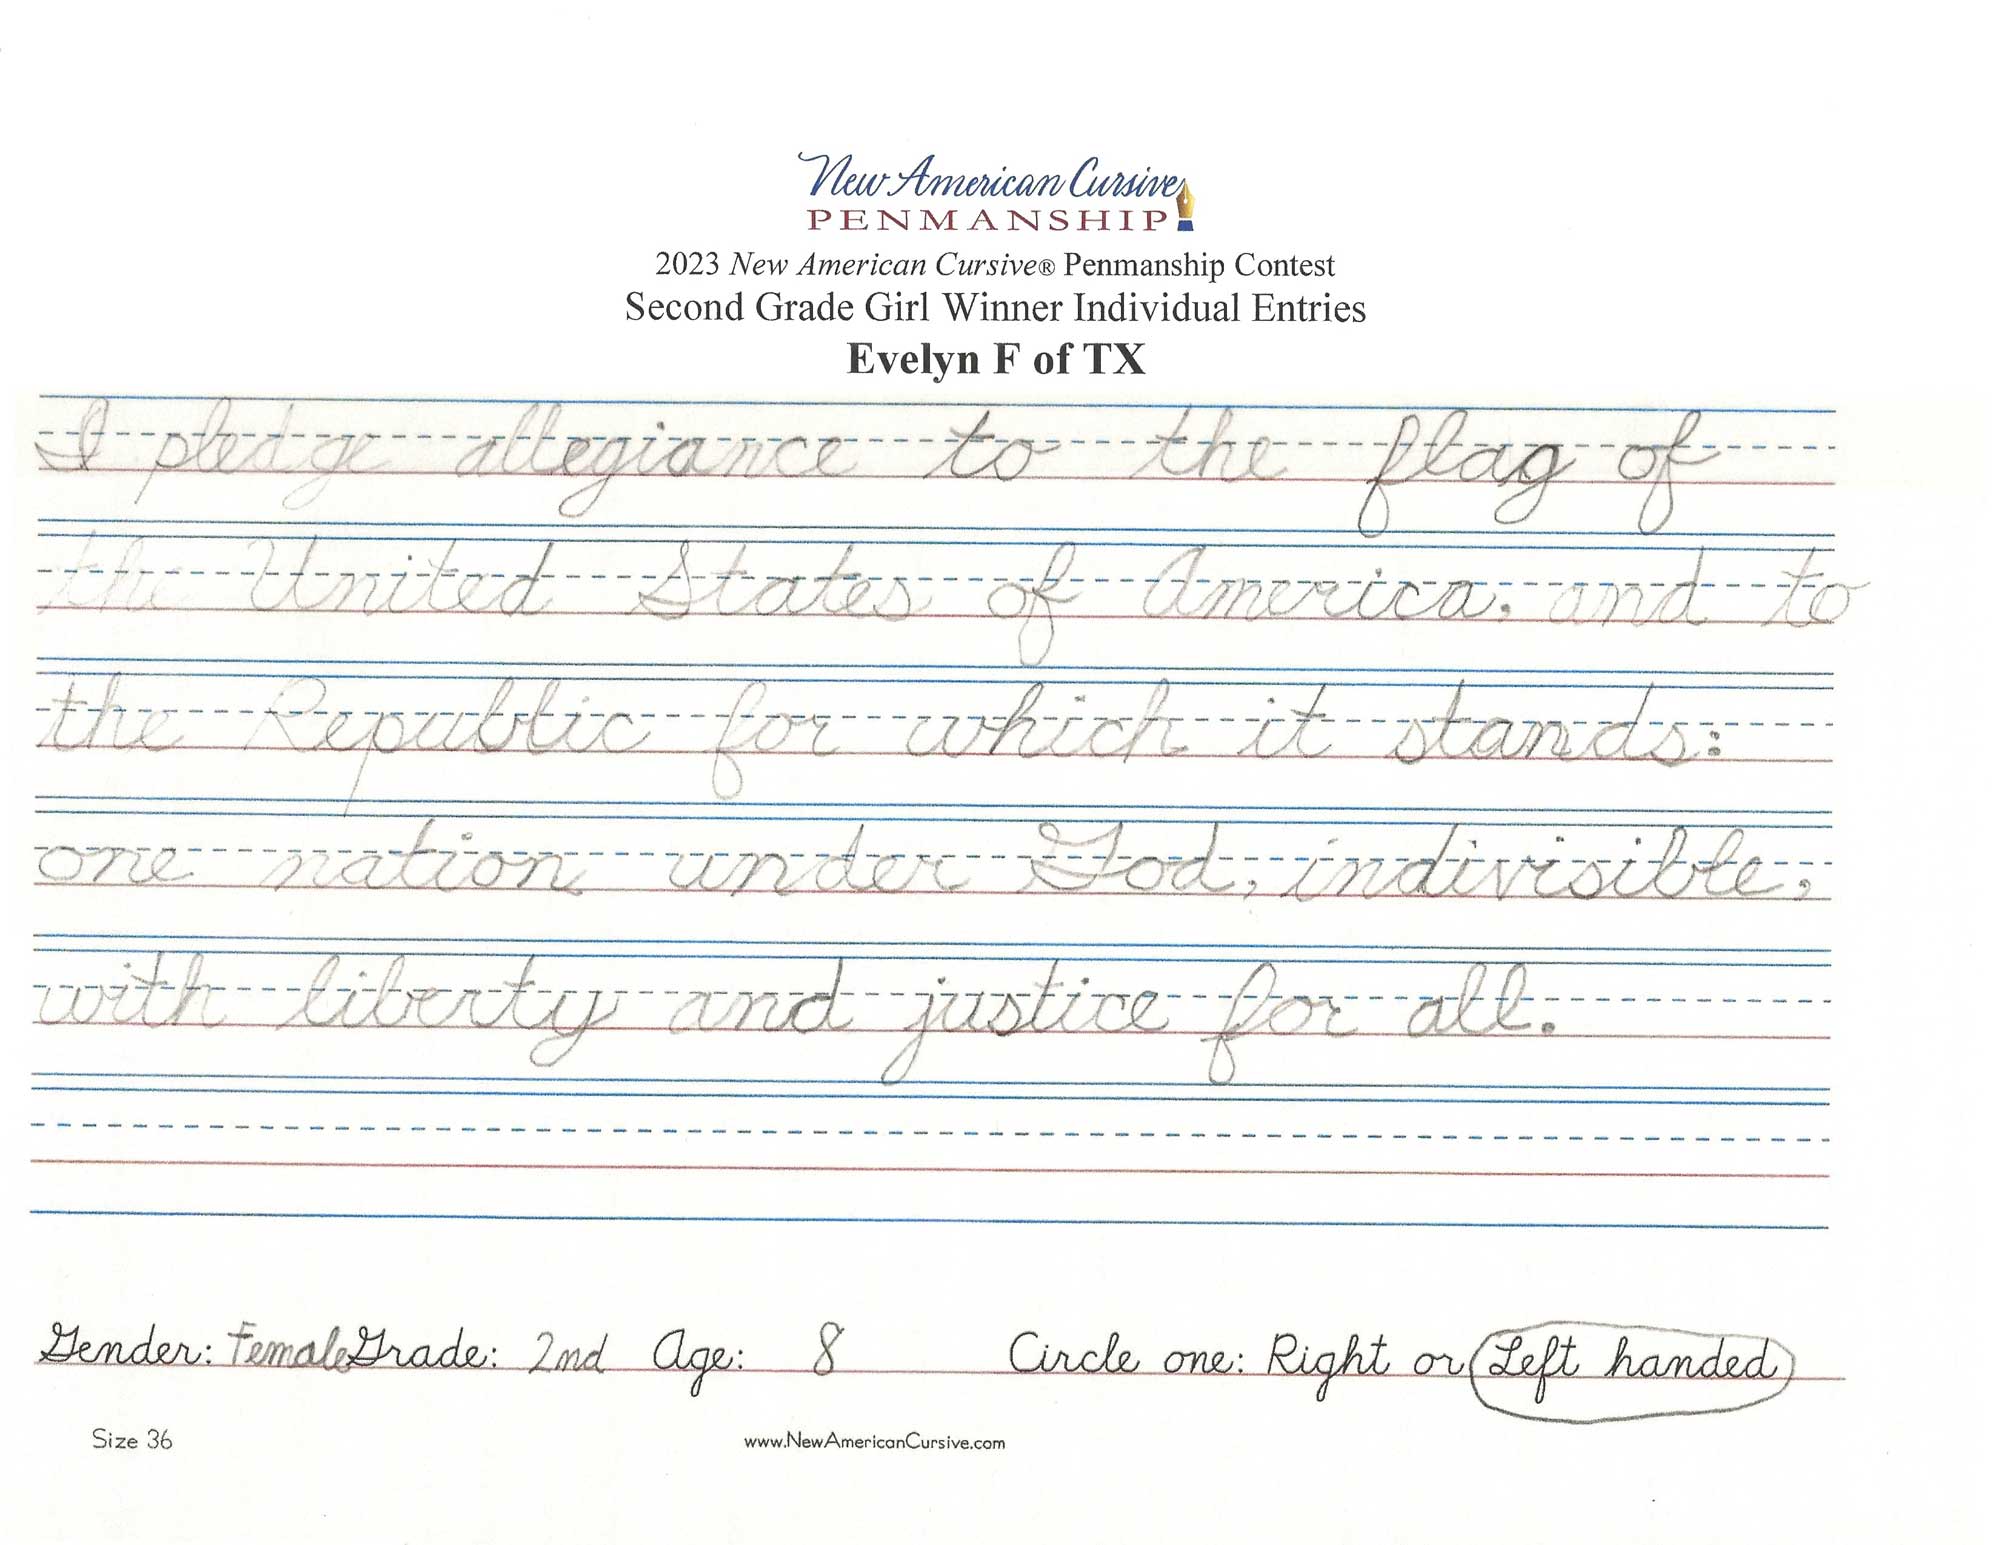 New American Cursive
PENMANSHIP
2023 New American Cursive® Penmanship Contest
Second Grade Girl Winner Individual Entries
Evelyn F of TX
I pledge allegiance to the flag of
the United States of America, and to
the Republic for which it stands:
one nation under God, indivisible,
with liberty and justice for all.
Gender: Female Grade: 2nd Age: 8 Circle one: Right or Left handed
Size 36 www.NewAmericanCursive.com